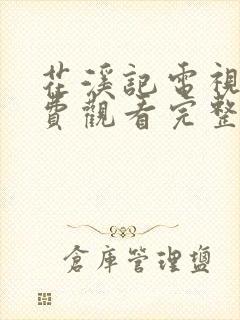 花溪記電視
費觀看完整
倉庫管理鹽